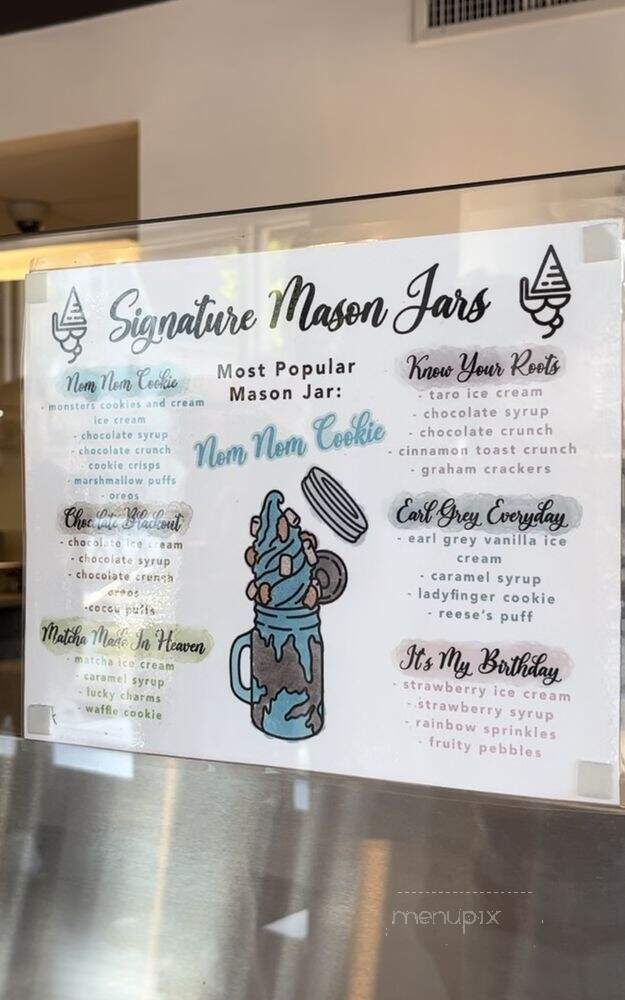 Signature Mason Jars
Nom Nom Cookie
- monsters cookies and cream
ice cream
- chocolate syrup
- chocolate crunch
- cookie crisps
- marshmallow puffs
- oreos
Chocolate Blackout
- chocolate ice cream
- chocolate syrup
- chocolate crunch
- oreos
- cocoa puffs
Matcha Made In Heaven
- matcha ice cream
- caramel syrup
- lucky charms
- waffle cookie
Most Popular
Mason Jar:
Nom Nom Cookie
Know Your Roots
- taro ice cream
- chocolate syrup
- chocolate crunch
- cinnamon toast crunch
- graham crackers
Earl Grey Everyday
- earl grey vanilla ice
cream
- caramel syrup
- ladyfinger cookie
- reese's puff
It's My Birthday
- strawberry ice cream
- strawberry syrup
- rainbow sprinkles
- fruity pebbles
menupix